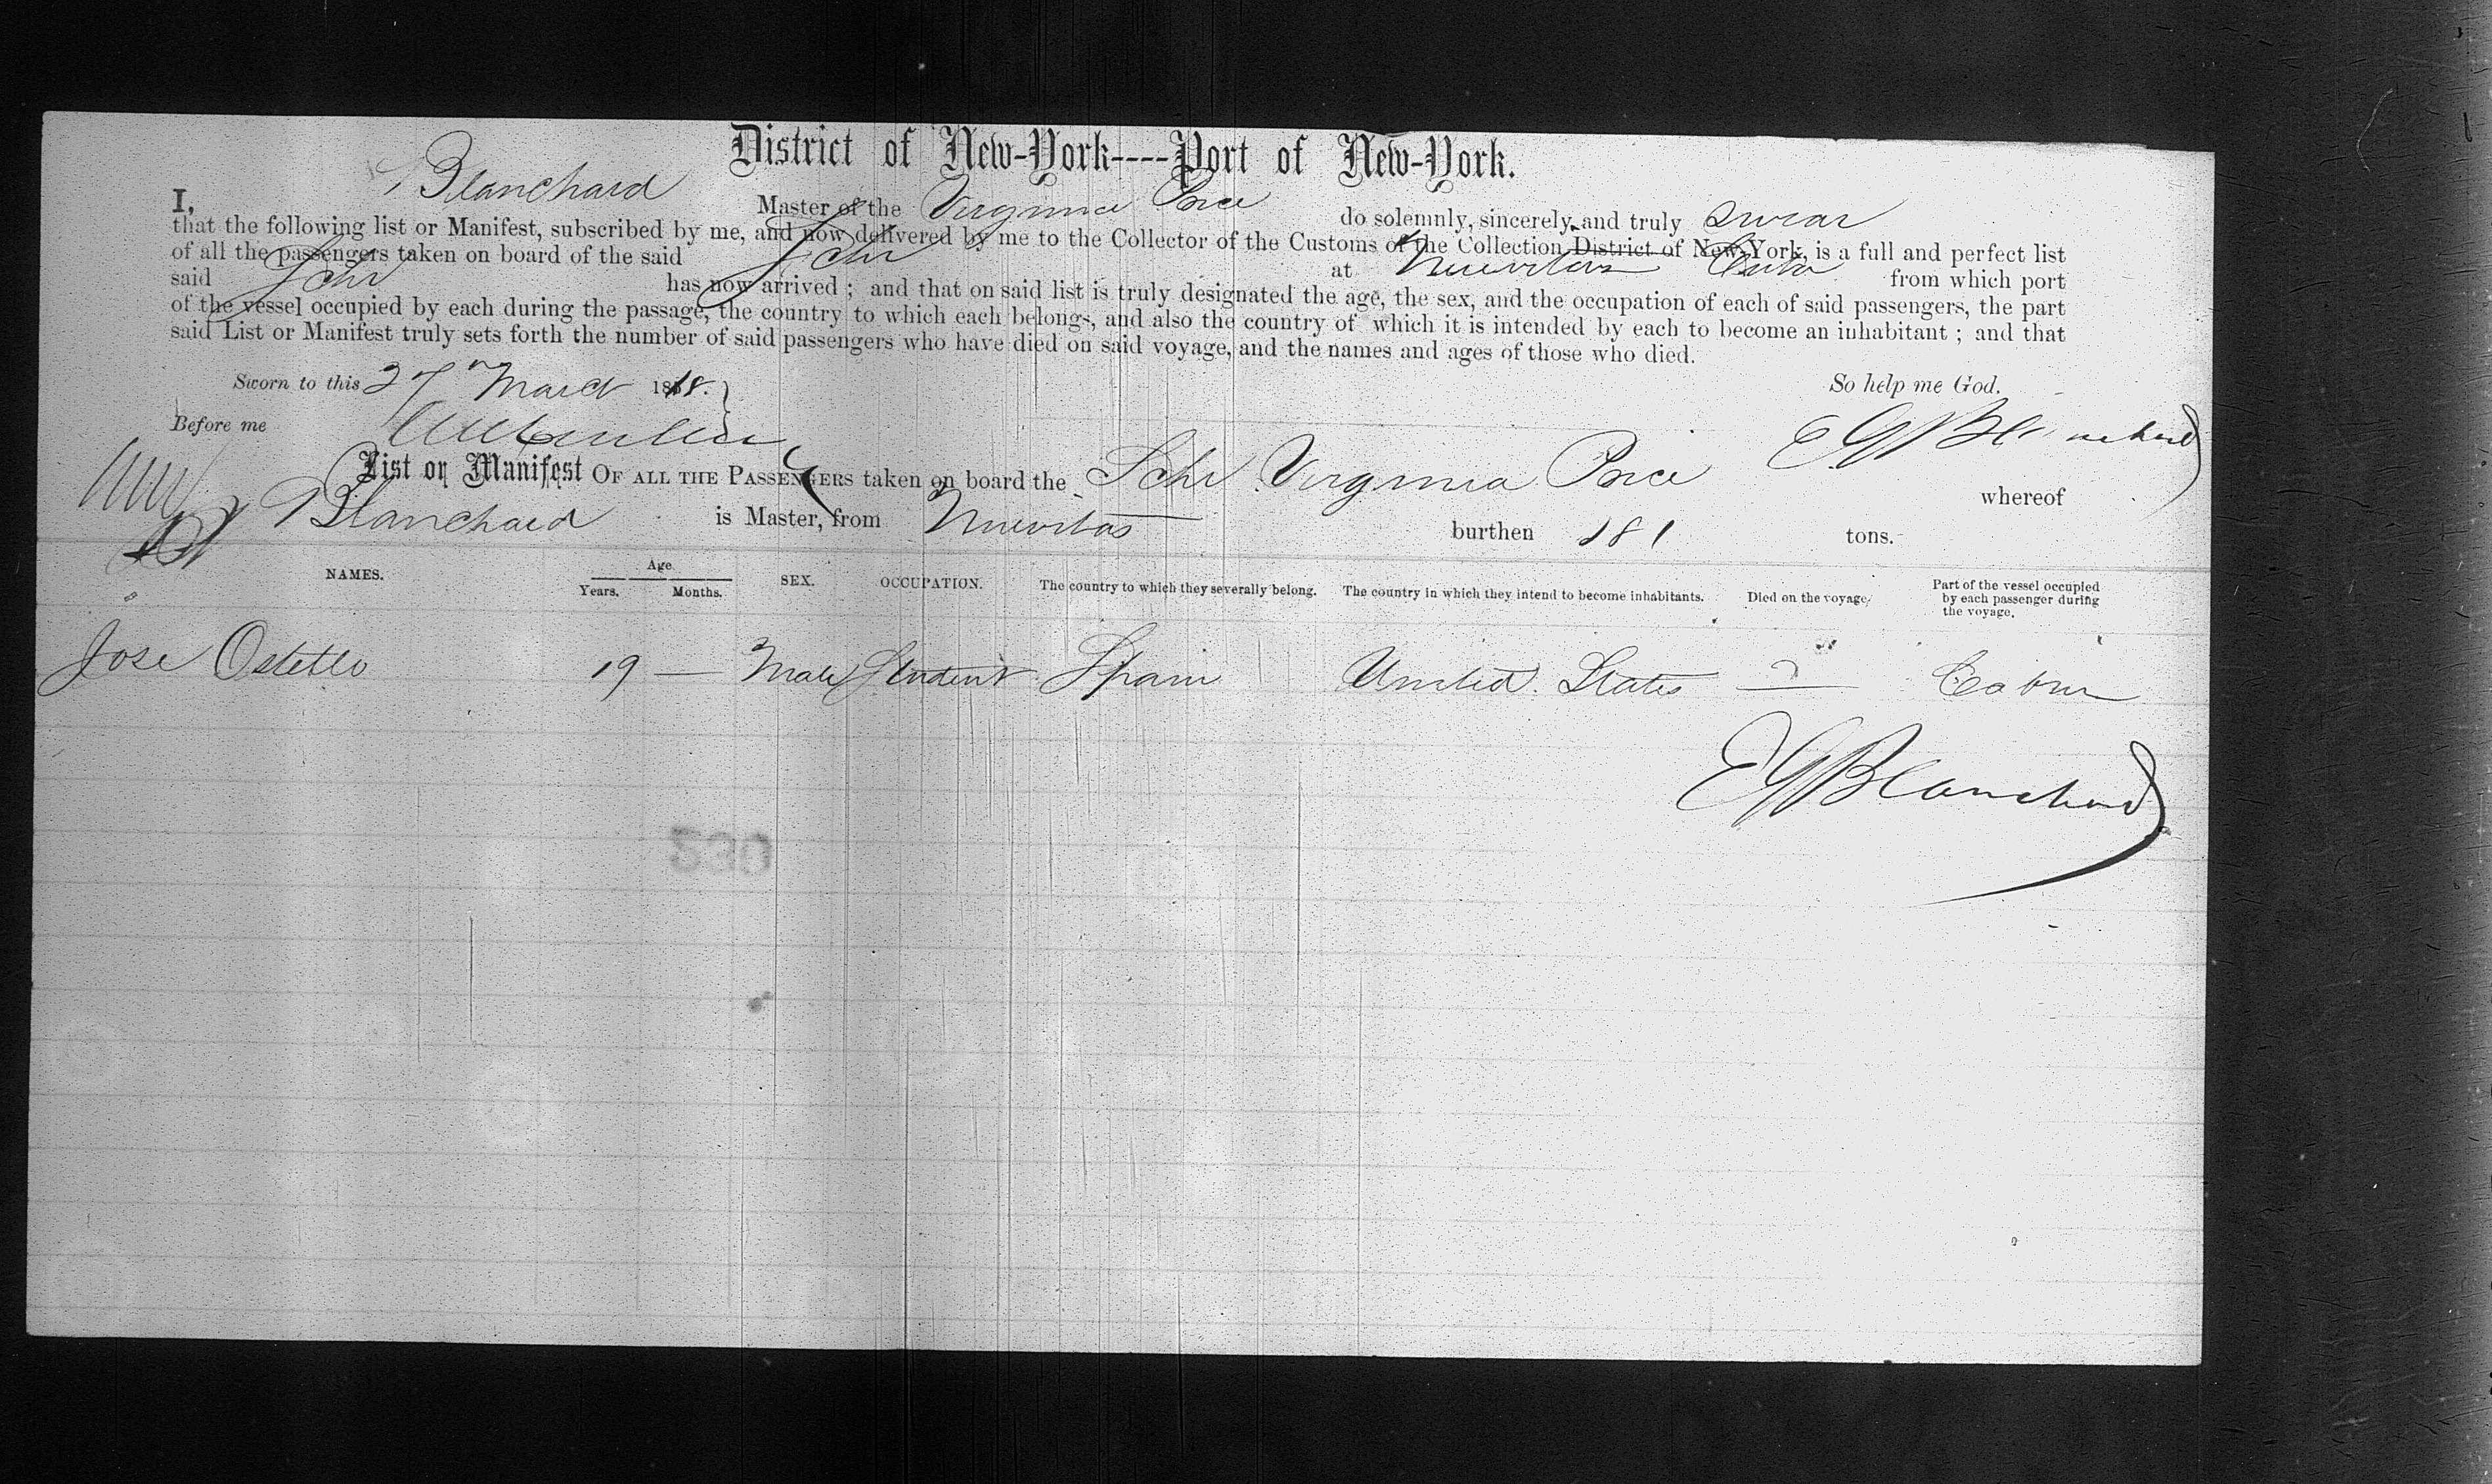 District of New-York----Port of New-York.
I, Blanchard Master of the Virginia Price do solemnly, sincerely and truly swear
that the following list or Manifest, subscribed by me, and now delivered by me to the Collector of the Customs of the Collection District of New-York, is a full and perfect list
of all the passengers taken on board of the said Schr at Nuevitas Cuba from which port
said Schr has now arrived ; and that on said list is truly designated the age, the sex, and the occupation of each of said passengers, the part
of the vessel occupied by each during the passage, the country to which each belongs, and also the country of which it is intended by each to become an inhabitant ; and that
said List or Manifest truly sets forth the number of said passengers who have died on said voyage, and the names and ages of those who died.
Sworn to this 27th March 18 So help me God.
Before me E G Blanchard
List or Manifest OF ALL THE PASSENGERS taken on board the Schr Virginia Price whereof
Blanchard is Master, from Nuevitas burthen 181 tons.
NAMES. Age Years. Months. SEX. OCCUPATION. The country to which they severally belong. The country in which they intend to become inhabitants. Died on the voyage. Part of the vessel occupied by each passenger during the voyage.
Jose Ostello 19 — Male Student Spain United States — Cabin
E G Blanchard
530